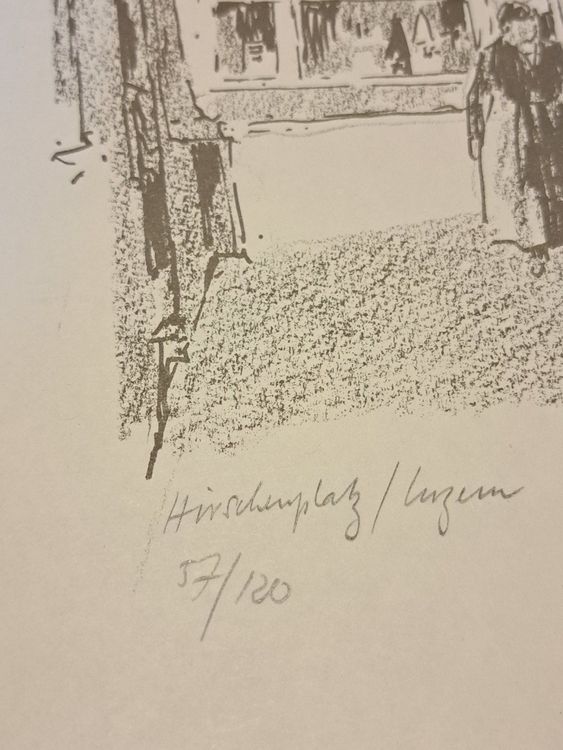 Hirschenplatz / Luzern
57/120